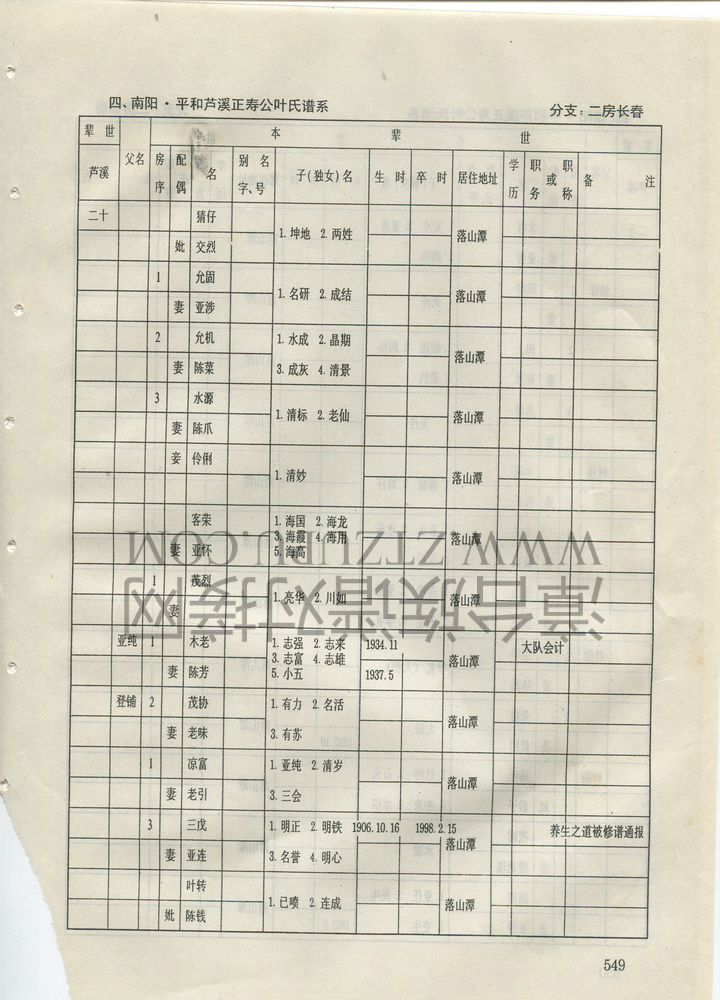 四、南阳·平和芦溪正寿公叶氏谱系 分支：二房长春
辈世 本辈世
芦溪 父名 房序 配偶 名 别名字、号 子(独女)名 生时 卒时 居住地址 学历 职务或职称 备注
二十 猜仔 1.坤地 2.两姓 落山潭
妣 交烈
1 允固 1.名研 2.成结 落山潭
妻 亚涉
2 允机 1.水成 2.晶期 落山潭
妻 陈菜 3.成灰 4.清景
3 水源 1.清标 2.老仙 落山潭
妻 陈爪
妾 伶俐 1.清妙 落山潭
客荣 1.海国 2.海龙 落山潭
妻 亚怀 3.海霞 4.海用
5.海高
1 茂烈 1.亮华 2.川如 落山潭
妻
亚纯 1 木老 1.志强 2.志来 1934.11 落山潭 大队会计
3.志富 4.志雄
妻 陈芳 5.小五 1937.5
登铺 2 茂协 1.有力 2.名活 落山潭
妻 老味 3.有苏
1 凉富 1.亚纯 2.清岁 落山潭
妻 老引 3.三会
3 三戊 1.明正 2.明铁 1906.10.16 1998.2.15 落山潭 养生之道被修谱通报
妻 亚连 3.名誉 4.明心
叶转 1.已喷 2.连成 落山潭
妣 陈钱
549
WWW.ZTZUPU.COM
漳台族谱对接网